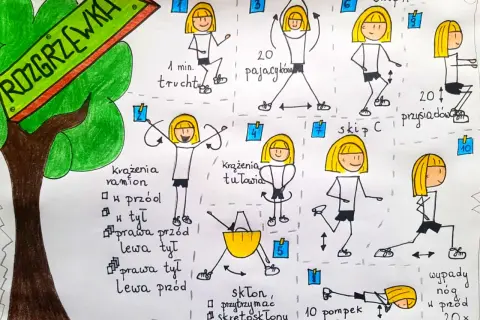 ROZGRZEWKA
1
1 min.
trucht
3
20
pajacyków
6
9
20
przysiadów
2
krążenia
ramion
w przód
w tył
prawa przód
lewa tył
prawa tył
lewa przód
4
krążenia
tułowia
7
skip C
10
wypady
nóg
w przód
20x
5
skłon
przytrzymać
skrętoskłony
10 pompek